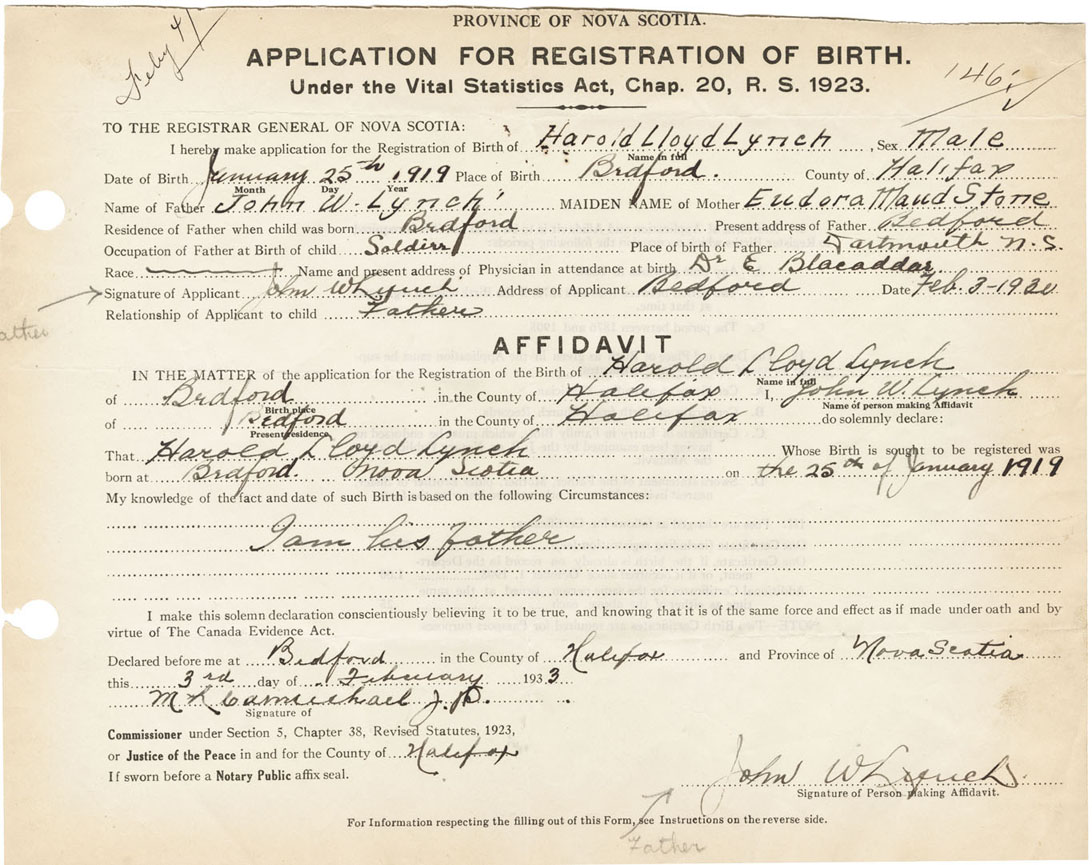 PROVINCE OF NOVA SCOTIA.
Feby 41
APPLICATION FOR REGISTRATION OF BIRTH.
Under the Vital Statistics Act, Chap. 20, R. S. 1923.
146
TO THE REGISTRAR GENERAL OF NOVA SCOTIA:
I hereby make application for the Registration of Birth of Harold Lloyd Lynch, Sex Male
Name in full
Date of Birth January 25th 1919 Place of Birth Bedford. County of Halifax
Month Day Year
Name of Father John W. Lynch MAIDEN NAME of Mother Eudora Maud Stone
Residence of Father when child was born Bedford Present address of Father Bedford
Occupation of Father at Birth of child Soldier Place of birth of Father Dartmouth N.S.
Race Name and present address of Physician in attendance at birth Dr E Blacaddar
Signature of Applicant John W Lynch Address of Applicant Bedford Date Feb. 3-1930
Relationship of Applicant to child Father
ather
AFFIDAVIT
IN THE MATTER of the application for the Registration of the Birth of Harold Lloyd Lynch
Name in full
of Bedford in the County of Halifax I, John W Lynch
Birth place Name of person making Affidavit
of Bedford in the County of Halifax do solemnly declare:
Present residence
That Harold Lloyd Lynch Whose Birth is sought to be registered was
born at Bedford. Nova Scotia on the 25th of January 1919
My knowledge of the fact and date of such Birth is based on the following Circumstances:
I am his father
I make this solemn declaration conscientiously believing it to be true, and knowing that it is of the same force and effect as if made under oath and by
virtue of The Canada Evidence Act.
Declared before me at Bedford in the County of Halifax and Province of Nova Scotia
this 3rd day of February 1933
Carmichael J.P.
Signature of
Commissioner under Section 5, Chapter 38, Revised Statutes, 1923,
or Justice of the Peace in and for the County of Halifax
If sworn before a Notary Public affix seal.
John W Lynch
Signature of Person making Affidavit.
For Information respecting the filling out of this Form, see Instructions on the reverse side.
Father